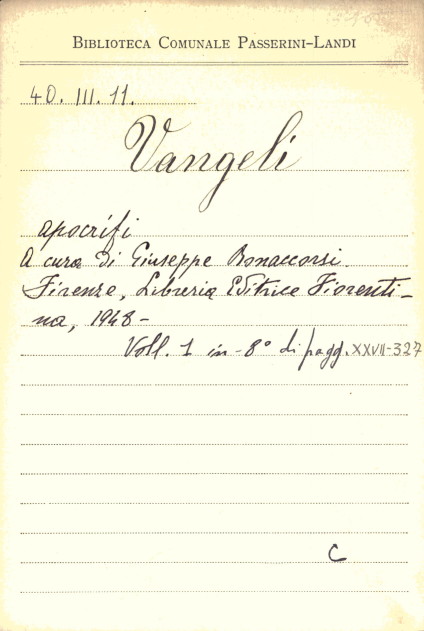 BIBLIOTECA COMUNALE PASSERINI-LANDI
40. III. 11.
Vangeli
apocrifi
A cura di Giuseppe Bonaccorsi.
Firenze, Libreria Editrice Fiorenti-
na, 1948-
Voll. 1 in-8° di pagg. XXVII-327
C